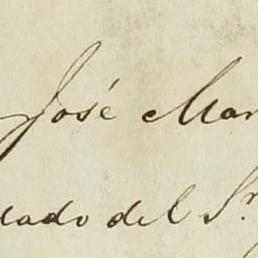 José Mar
dado del Sr